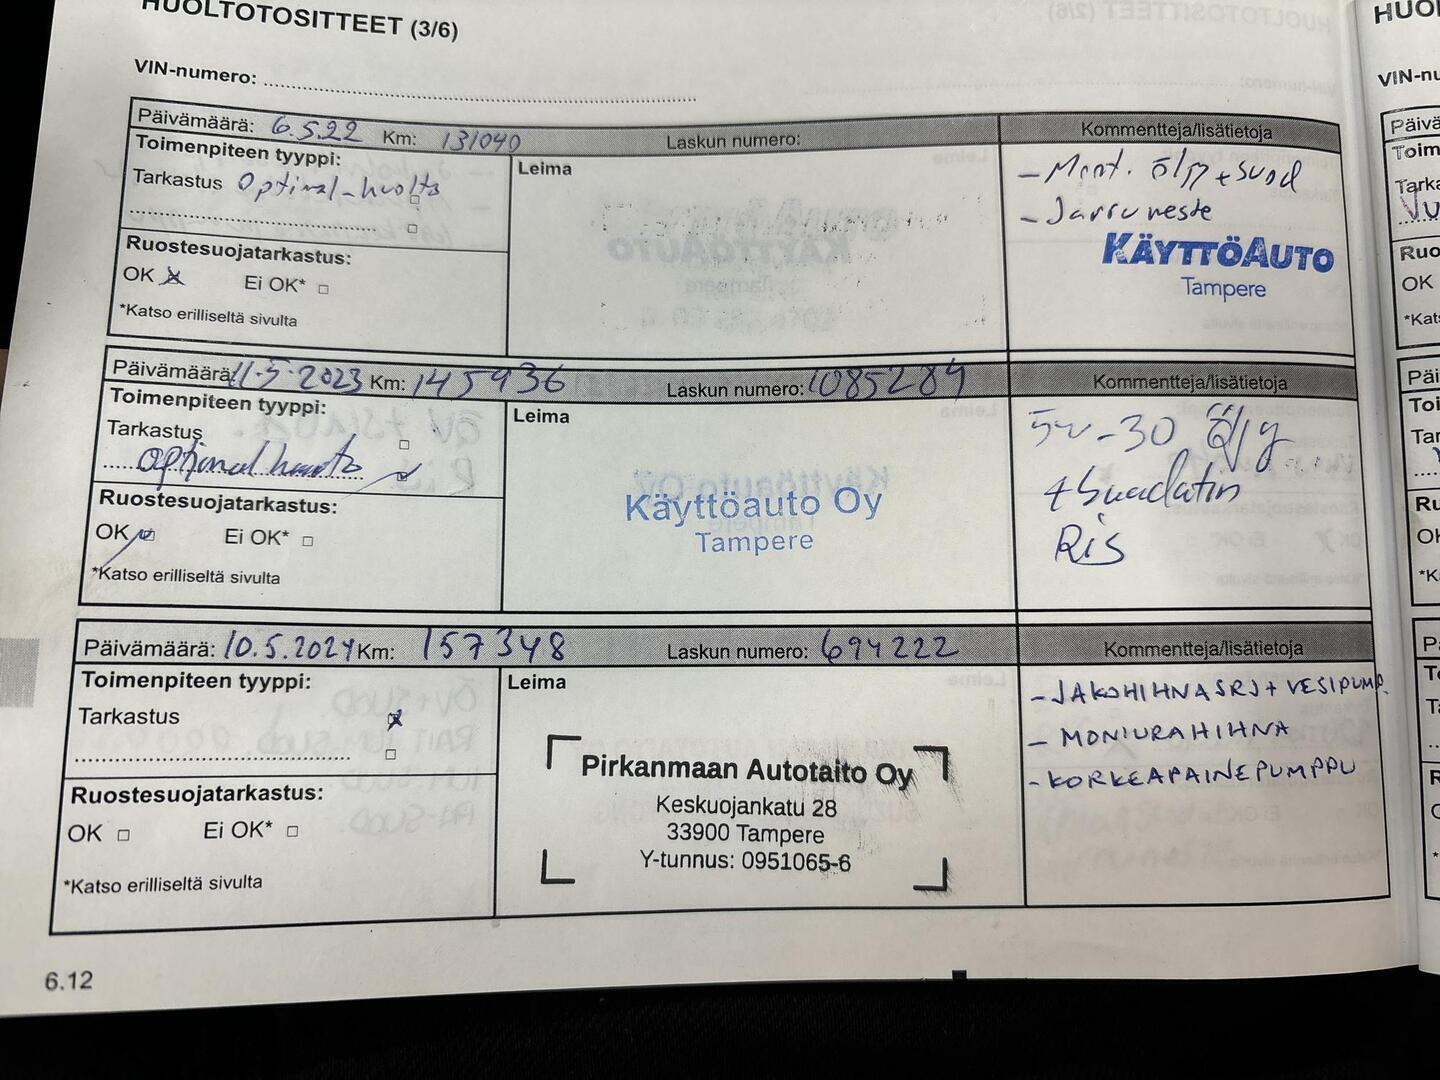 HUOLTOTOSITTEET (3/6)
VIN-numero:
Päivämäärä: 6.5.22 Km: 131040 Laskun numero: Kommentteja/lisätietoja
Toimenpiteen tyyppi:
Tarkastus Optimal-huolto
Leima
- Moot. öljy + suod
- Jarruneste
KÄYTTÖAUTO
Tampere
Ruostesuojatarkastus:
OK Ei OK*
*Katso erilliseltä sivulta
Päivämäärä: 11.5.2023 Km: 145936 Laskun numero: 1085289 Kommentteja/lisätietoja
Toimenpiteen tyyppi:
Tarkastus
optimal huolto
Leima
Käyttöauto Oy
Tampere
5w-30 öljy
+ Suodatin
RiS
Ruostesuojatarkastus:
OK Ei OK*
*Katso erilliseltä sivulta
Päivämäärä: 10.5.2024 Km: 157348 Laskun numero: 694222 Kommentteja/lisätietoja
Toimenpiteen tyyppi:
Tarkastus
Leima
Pirkanmaan Autotaito Oy
Keskuojankatu 28
33900 Tampere
Y-tunnus: 0951065-6
- JAKOHIHNASRJ + VESIPUMP.
- MONIURAHIHNA
- KORKEAPAINEPUMPPU
Ruostesuojatarkastus:
OK Ei OK*
*Katso erilliseltä sivulta
6.12